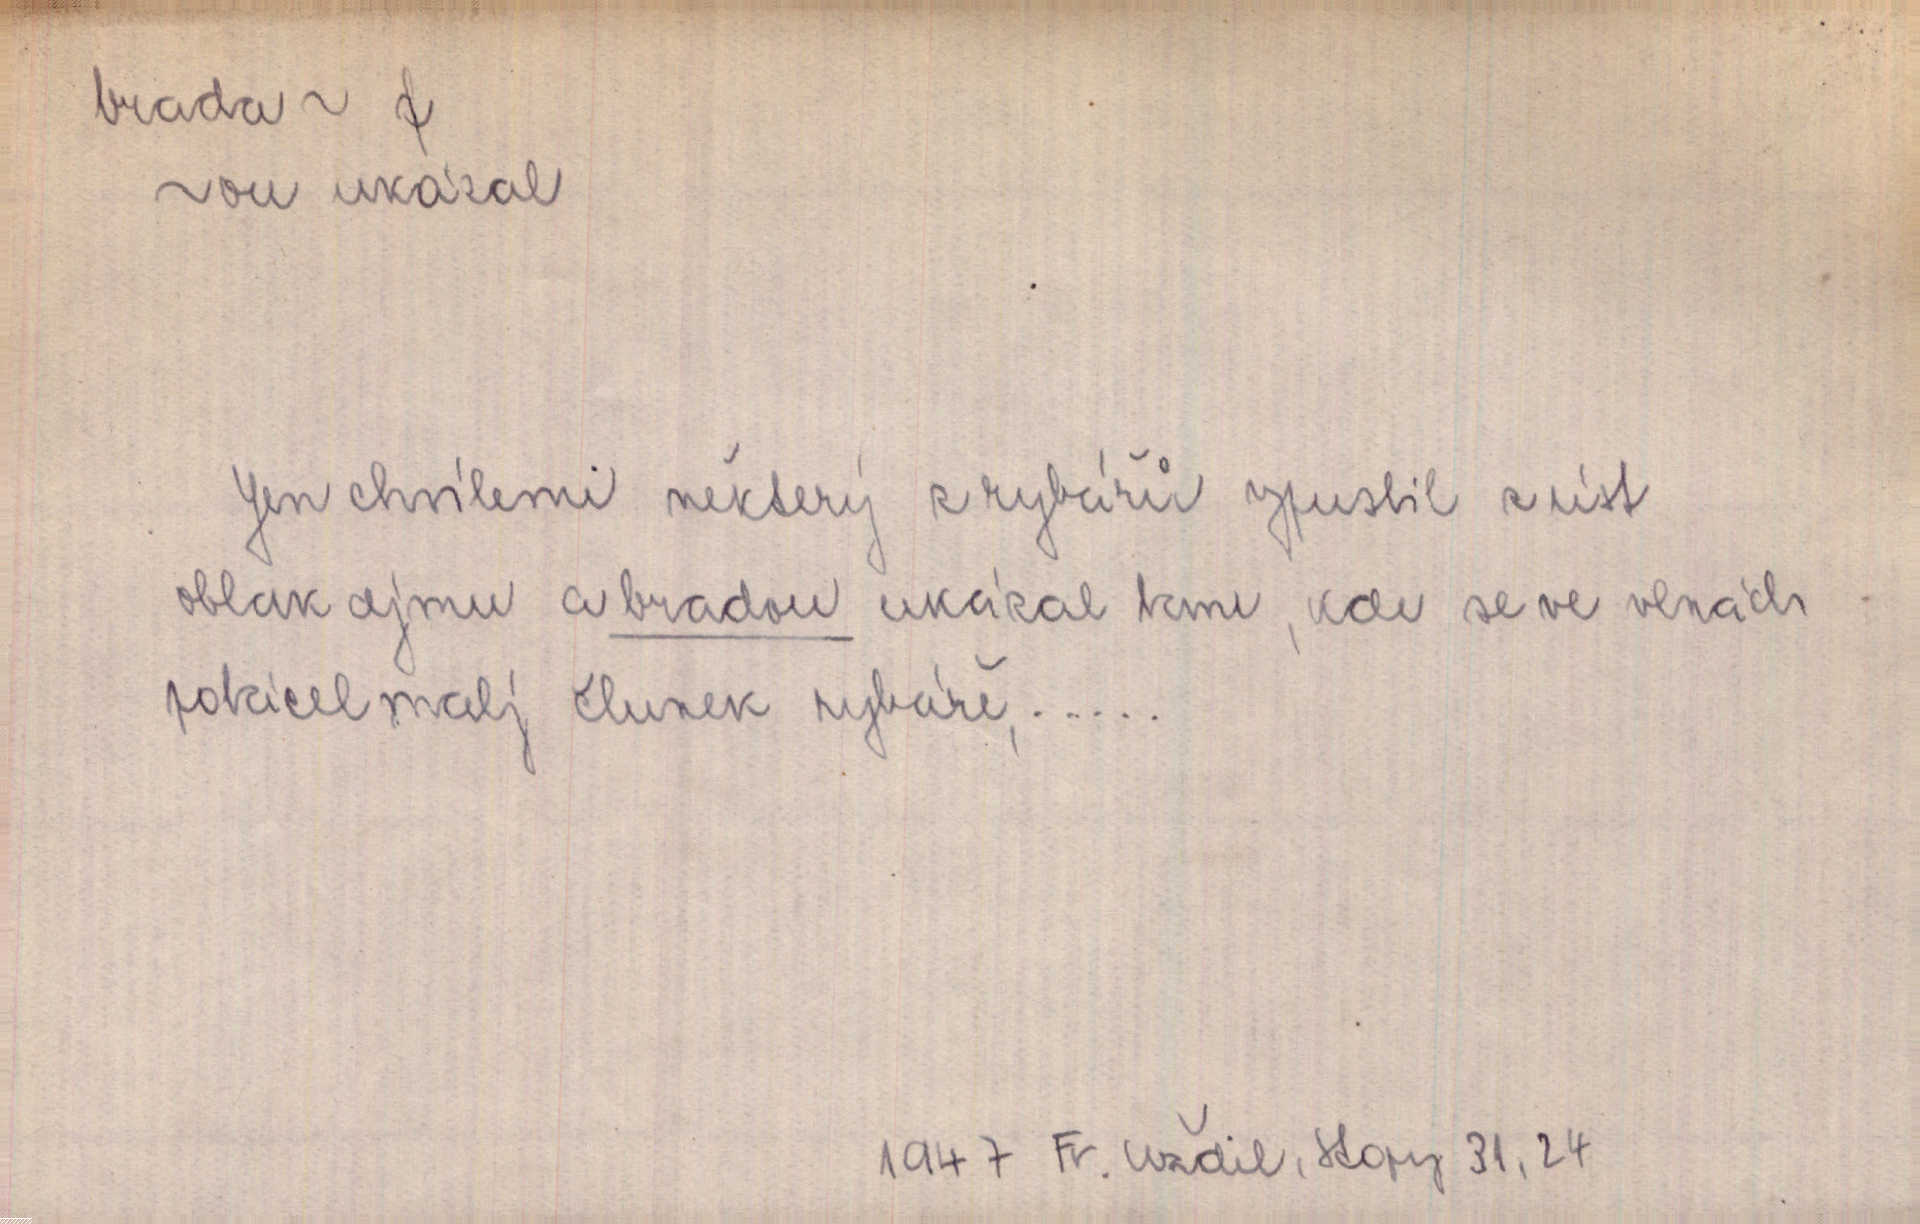 brada ~ f
~ou ukázal
Jen chvílemi některý z rybářů vypustil z úst
oblak dýmu a bradou ukázal tam, kde se ve vlnách
potácel malý člunek rybáře, . . . . .
1947 Fr. Uždil, Stopy 31, 24